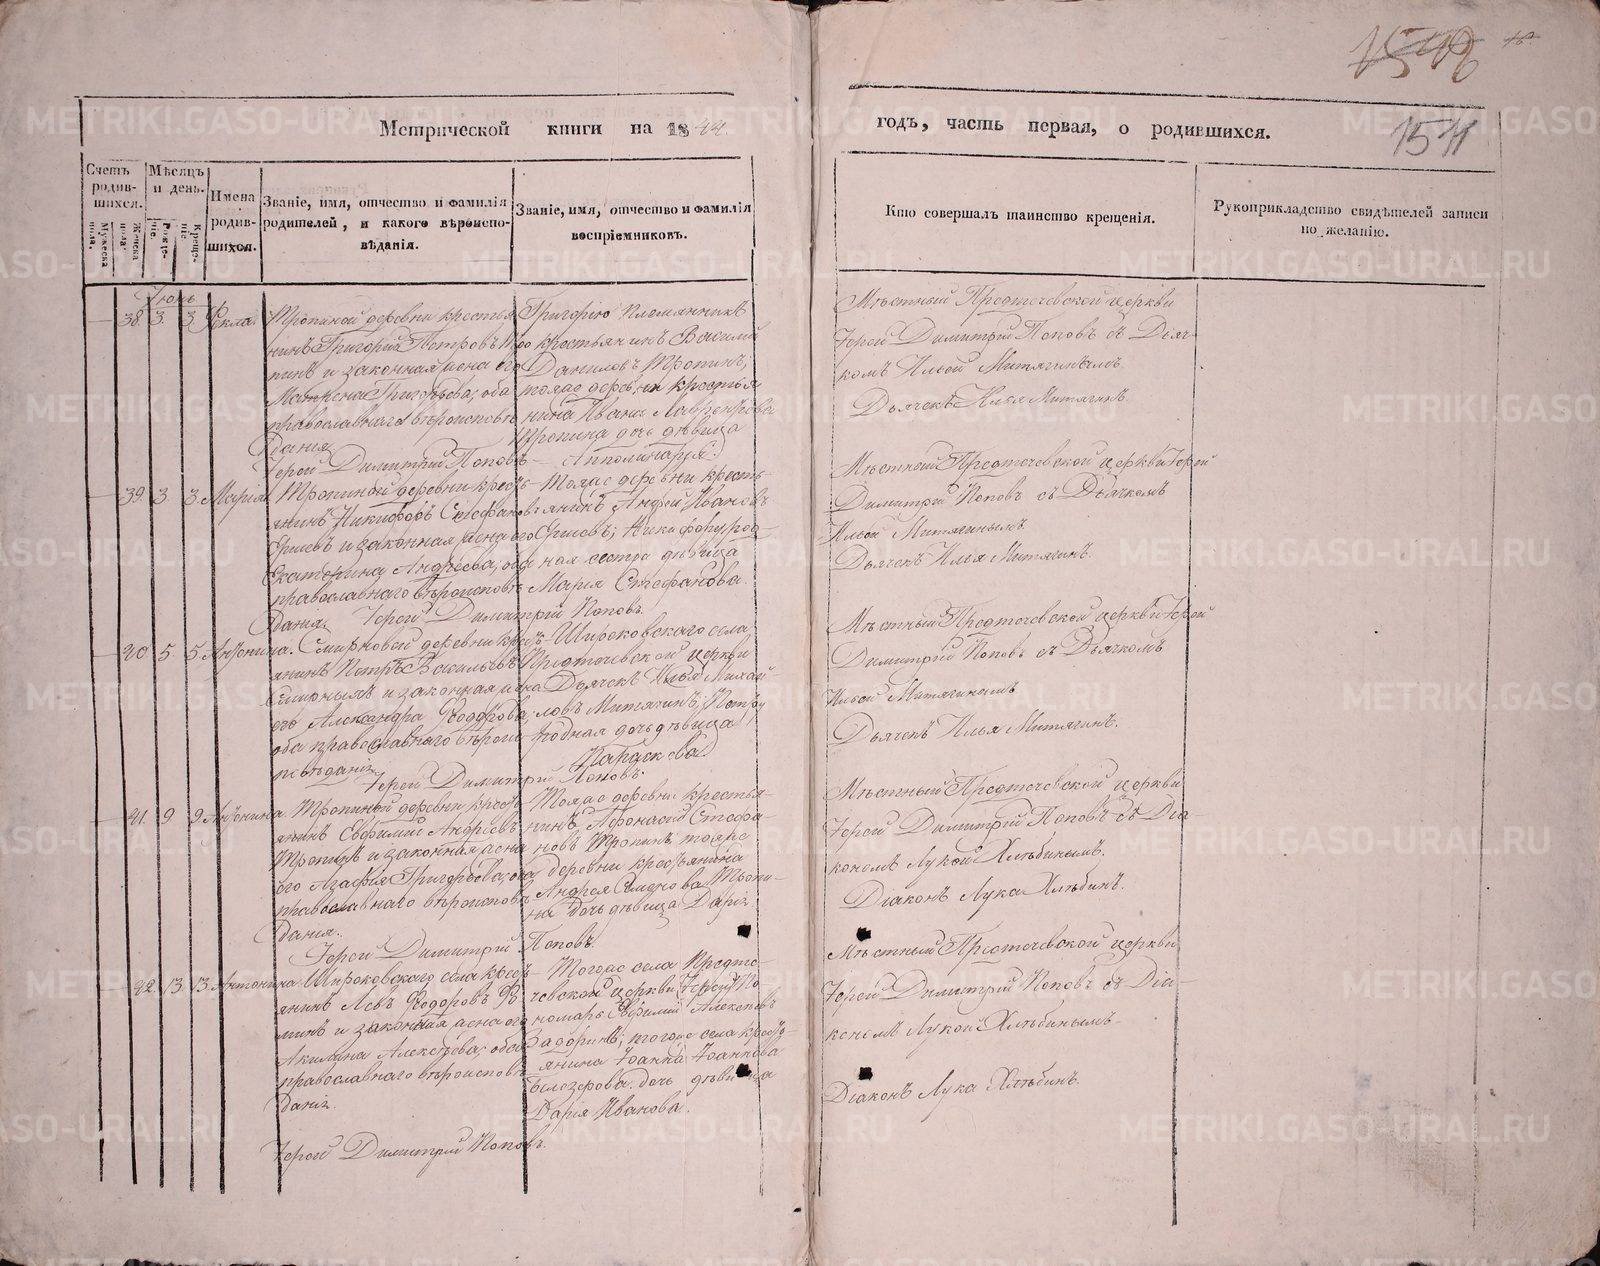 1541
Метрической книги на 1844.
годъ, часть первая, о родившихся.
Счетъ родившихся.
Мужеска пола.
Женска пола.
Мѣсяцъ и день.
Рожденіе.
Крещеніе.
Имена родившихся.
Званіе, имя, отчество и фамилія родителей, и какого вѣроисповѣданія.
Званіе, имя, отчество и фамилія воспріемниковъ.
Кто совершалъ таинство крещенія.
Рукоприкладство свидѣтелей записи по желанію.
Іюнь
38. 3. 3. Ѳекла.
Тропиной деревни крестья
нинъ Григорій Петровъ Тро
пинъ и законная жена его
Матрена Григорьева, оба
православнаго вѣроисповѣ
данія.
Іерей Димитрій Поповъ
Григорію племянникъ
крестьянинъ Василій
Даниловъ Тропинъ,
тояже деревни крестья
нина Ивана Лаврентьева
Тропина дочь дѣвица
Апполинарія.
Мѣстный Предтечевской церкви
Іерей Димитрій Поповъ съ Дьяч-
комъ Ильей Митягинымъ.
Дьячекъ Илья Митягинъ.
39. 3. 3. Марія.
Тропиной деревни кресть-
янинъ Никифоръ Стефановъ
и законная жена его
Екатерина Андреева, оба
православнаго вѣроисповѣ
данія.
Іерей Димитрій Поповъ.
Тояже деревни кресть-
янинъ Андрей Ивановъ
Никифору род-
ная сестра дѣвица
Марія Стефанова.
Мѣстный Предтечевской церкви Іерей
Димитрій Поповъ съ Дьячкомъ
Ильей Митягинымъ.
Дьячекъ Илья Митягинъ.
40 5. 5. Антонина.
Смирновой деревни кресть-
янинъ Петръ Васильевъ
и законная жена
его Александра Ѳедорова,
оба православнаго вѣрои-
сповѣданія.
Іерей Димитрій Поповъ.
Широковскаго села
Предтечевской церкви
Дьячекъ Илья Михай-
ловъ Митягинъ; Петру
родная дочь дѣвица
Параскева
Мѣстный Предтечевской церкви Іерей
Димитрій Поповъ съ Дьячкомъ
Ильей Митягинымъ
Дьячекъ Илья Митягинъ.
41. 9 9 Антонина.
Тропиной деревни кресть-
янинъ Евфимій Андреевъ
Тропинъ и законная жена
его Агафія Григорьева, оба
православнаго вѣроисповѣ
данія.
Іерей Димитрій Поповъ.
Тояже деревни крестья-
нинъ Афонасій Стефа-
новъ Тропинъ, тояже
деревни крестьянина
Андрея Семенова Тропи-
на дочь дѣвица Дарія.
Мѣстный Предтечевской церкви
Іерей Димитрій Поповъ съ Діа-
кономъ Лукой Хлѣбинымъ.
Діаконъ Лука Хлѣбинъ.
42. 13. 13. Антонина
Широковскаго села кресть-
янинъ Левъ Ѳедоровъ
и законная жена его
Акилина Алексѣева, оба
православнаго вѣроисповѣ
данія.
Іерей Димитрій Поповъ.
Тогоже села Предте-
чевской церкви По-
номарь Евфимій Алексѣевъ
Задоринъ; тогоже села кресть-
янина Іоанна Іоаннова
Бѣлозерова дочь дѣвица
Дарія Иванова.
Мѣстный Предтечевской церкви
Іерей Димитрій Поповъ съ Діа-
кономъ Лукой Хлѣбинымъ.
Діаконъ Лука Хлѣбинъ.
METRIKI.GASO-URAL.RU